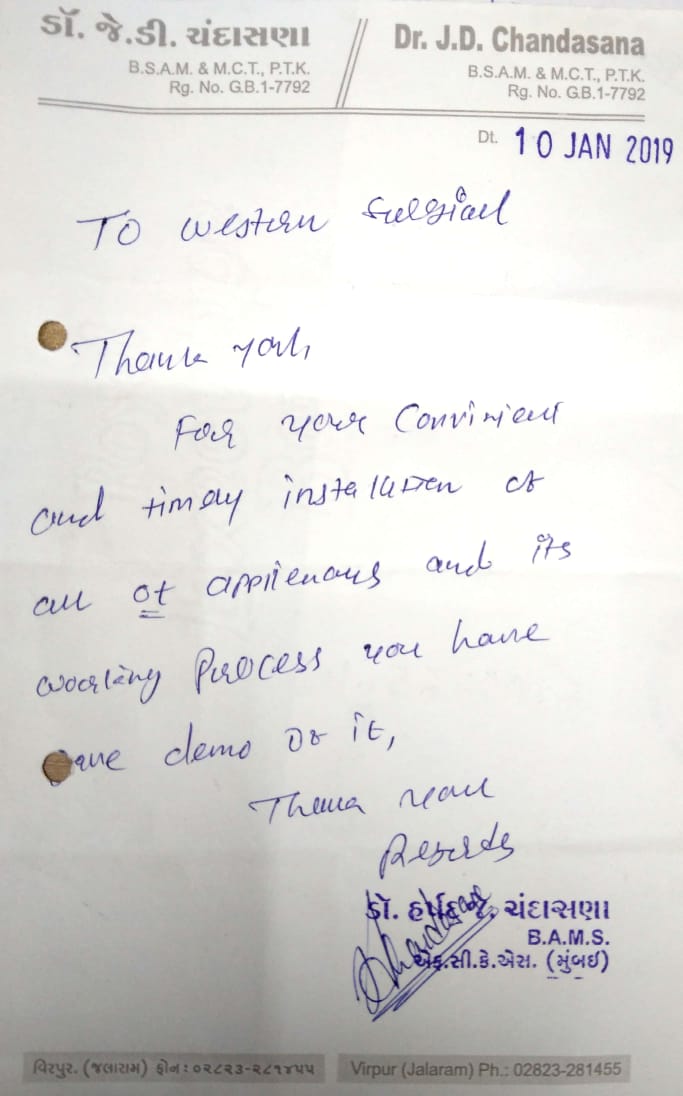 ડૉ. જે.ડી. ચંદાસણા
B.S.A.M. & M.C.T., P.T.K.
Rg. No. G.B.1-7792
Dr. J.D. Chandasana
B.S.A.M. & M.C.T., P.T.K.
Rg. No. G.B.1-7792
Dt. 10 JAN 2019
To western surgical
Thank you,
For your Convinient
and timely installation of
all of and its
working Process you have
gave demo of it,
Thank you
Regards
ડૉ. હર્ષદ જે. ચંદાસણા
B.A.M.S.
એફ.સી.કે.એસ. (મુંબઈ)
વિરપુર. (જલારામ) ફોન : ૦૨૮૨૩-૨૮૧૪૫૫
Virpur (Jalaram) Ph.: 02823-281455